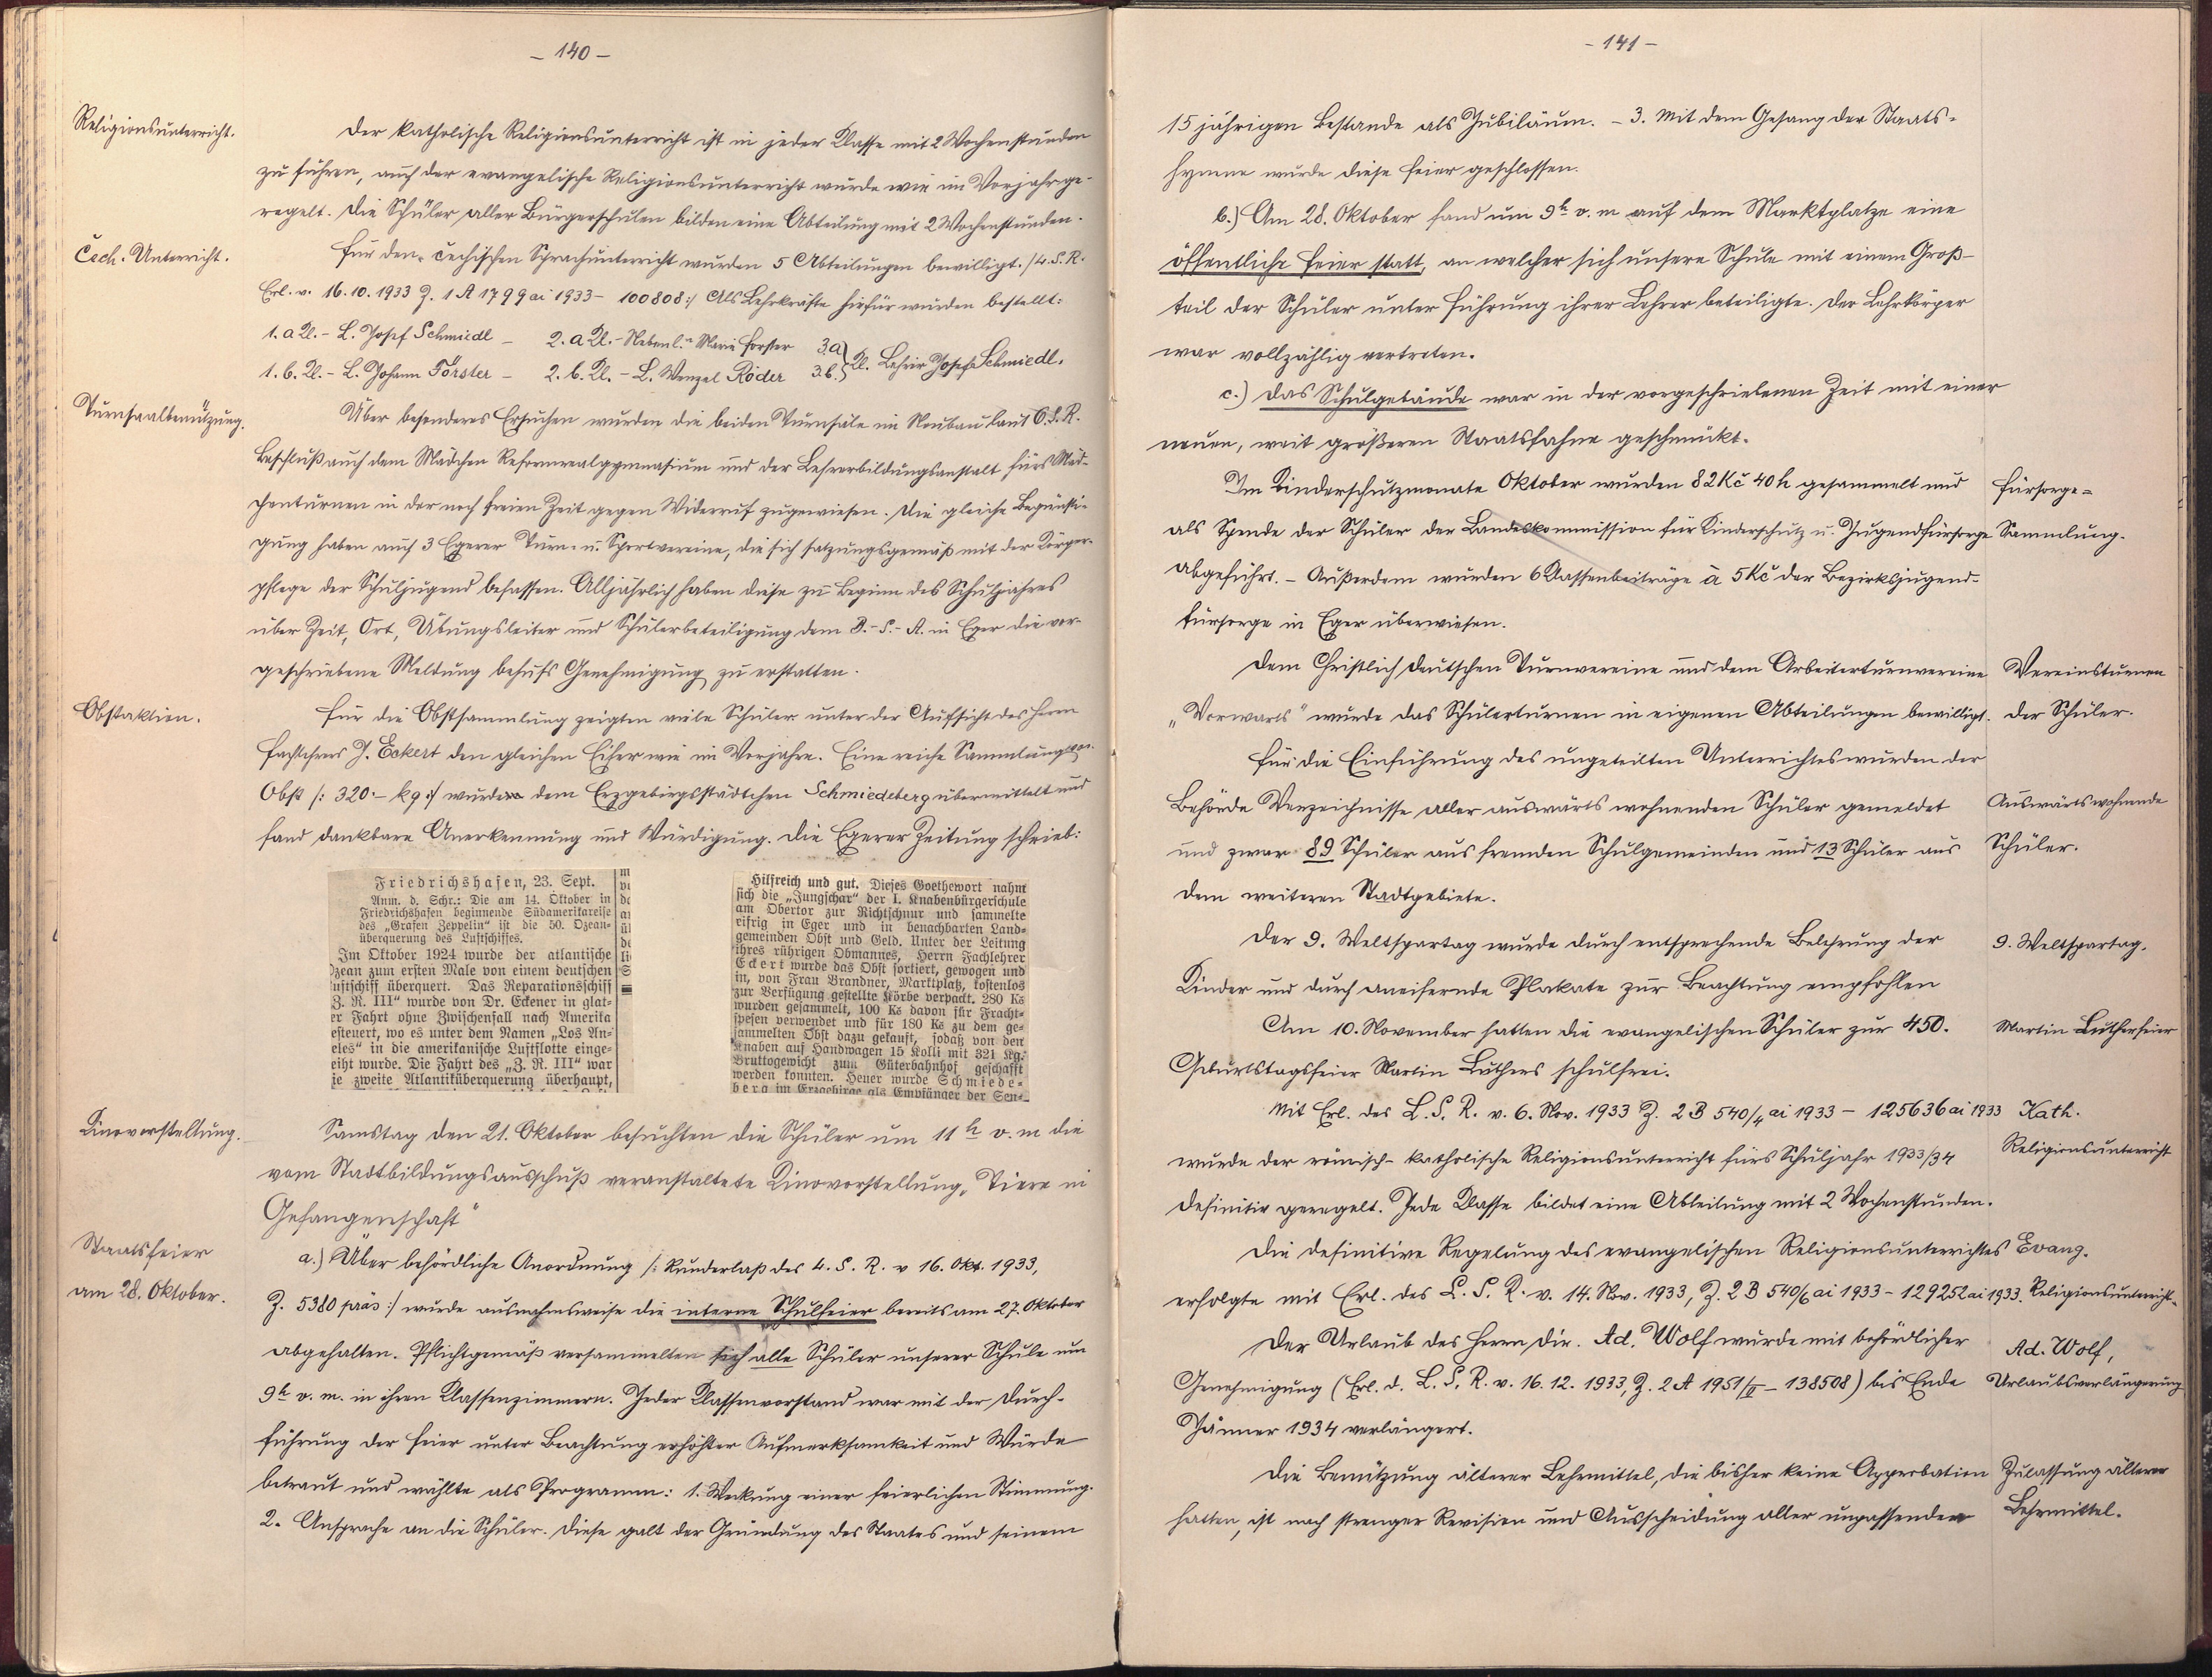 - 140 -
Religionsunterricht.
Der katholische Religionsunterricht ist in jeder Klasse mit 2 Wochenstunden
zu führen, auch der evangelische Religionsunterricht wurde wie im Vorjahr ge-
regelt. Die Schüler aller Bürgerschulen bilden eine Abteilung mit 2 Wochenstunden.
Čech. Unterricht.
Für den čechischen Sprachunterricht wurden 5 Abteilungen bewilligt. /: L. S. R.
Erl. v. 16.10.1933 Z. 1 A 1799 ai 1933 - 100808 :/ Als Lehrkräfte hiefür wurden bestellt:
1. a Kl. - L. Josef Schmiedl - 2. a Kl. - Nebenl. in Marie Forster 3. a
1. b. Kl. - L. Johann Förster - 2. b. Kl. - L. Wenzel Röder 3. b. Kl. Lehrer Josef Schmiedl.
Turnsaalbenützung.
Über besonderes Ersuchen wurden die beiden Turnsäle im Neubau laut O. S. R.
Beschluß auch dem Mädchen Reformrealgymnasium und der Lehrerbildungsanstalt fürs Mäd-
chenturnen in der noch freien Zeit gegen Widerruf zugewiesen. Die gleiche Begünsti-
gung haben auch 3 Egerer Turn- u. Sportvereine, die sich satzungsgemäß mit der Körper-
pflege der Schuljugend befassen. Alljährlich haben diese zu Beginn des Schuljahres
über Zeit, Ort, Übungsleiter und Schülerbeteiligung dem B.-S.-A. in Eger die vor-
geschriebene Meldung behufs Genehmigung zu erstatten.
Obstaktion.
Für die Obstsammlung zeigten viele Schüler unter der Aufsicht des Herrn
Fachlehrers J. Eckert den gleichen Eifer wie im Vorjahre. Eine reiche Sammlung von
Obst /: 320.- kg :/ wurde dem Erzgebirgsstädtchen Schmiedeberg übermittelt und
fand dankbare Anerkennung und Würdigung. Die Egerer Zeitung schrieb:
Friedrichshafen, 23. Sept.
Anm. d. Schr.: Die am 14. Oktober in
Friedrichshafen beginnende Südamerikareise
des „Grafen Zeppelin" ist die 50. Ozean-
überquerung des Luftschiffes.
Im Oktober 1924 wurde der atlantische
Ozean zum ersten Male von einem deutschen
uftschiff überquert. Das Reparationsschiff
Z. R. III" wurde von Dr. Eckener in glat-
er Fahrt ohne Zwischenfall nach Amerika
esteuert, wo es unter dem Namen „Los An-
eles" in die amerikanische Luftflotte einge-
eiht wurde. Die Fahrt des „Z. R. III" war
ie zweite Atlantiküberquerung überhaupt,
Hilfreich und gut. Dieses Goethewort nahm
sich die „Jungschar" der I. Knabenbürgerschule
am Obertor zur Richtschnur und sammelte
eifrig in Eger und in benachbarten Land-
gemeinden Obst und Geld. Unter der Leitung
ihres rührigen Obmannes, Herrn Fachlehrer
Eckert wurde das Obst sortiert, gewogen und
in, von Frau Brandner, Marktplatz, kostenlos
zur Verfügung gestellte Körbe verpackt. 280 Kč
wurden gesammelt, 100 Kč davon für Fracht-
spesen verwendet und für 180 Kč zu dem ge-
sammelten Obst dazu gekauft, sodaß von den
Knaben auf Handwagen 15 Kolli mit 321 Kg.
Bruttogewicht zum Güterbahnhof geschafft
werden konnten. Heuer wurde Schmiede-
berg im Erzgebirge als Empfänger der Sen-
Kinovorstellung.
Samstag den 21. Oktober besuchten die Schüler um 11 h v. m die
vom Stadtbildungsausschuß veranstaltete Kinovorstellung „Tiere in
Gefangenschaft"
Staatsfeier
am 28. Oktober.
a.) Über behördliche Anordnung /: Runderlaß des L. S. R. v 16. Okt. 1933,
Z. 5380 präs :/ wurde ausnahmsweise die interne Schulfeier bereits am 27. Oktober
abgehalten. Pflichtgemäß versammelten sich alle Schüler unserer Schule um
9h v. m. in ihren Klassenzimmern. Jeder Klassenvorstand war mit der Durch-
führung der Feier unter Beachtung erhöhter Aufmerksamkeit und Würde
betraut und wählte als Programm: 1. Weckung einer feierlichen Stimmung.
2. Ansprache an die Schüler. Diese galt der Gründung des Staates und seinem
- 141 -
15 jährigen Bestande als Jubiläum. - 3. Mit dem Gesang der Staats-
hymne wurde diese Feier geschlossen.
b.) Am 28. Oktober fand um 9h v. m auf dem Marktplatze eine
öffentliche Feier statt, an welcher sich unsere Schule mit einem Groß-
teil der Schüler unter Führung ihrer Lehrer beteiligte. Der Lehrkörper
war vollzählig vertreten.
c.) Das Schulgebäude war in der vorgeschriebenen Zeit mit einer
neuen, weit größeren Staatsfahne geschmückt.
Im Kinderschutzmonate Oktober wurden 82 Kč 40 h gesammelt und
als Spende der Schüler der Landeskommission für Kinderschutz u. Jugendfürsorge
abgeführt. - Außerdem wurden 6 Klassenbeiträge à 5 Kč der Bezirksjugend-
fürsorge in Eger überwiesen.
Fürsorge-
Sammlung.
Dem Christlich deutschen Turnvereine und dem Arbeiterturnvereine
„Vorwärts" wurde das Schülerturnen in eigenen Abteilungen bewilligt.
Vereinsturnen
der Schüler.
Für die Einführung des ungeteilten Unterrichtes wurden der
Behörde Verzeichnisse aller auswärts wohnenden Schüler gemeldet
und zwar 89 Schüler aus fremden Schulgemeinden und 13 Schüler aus
dem weiteren Stadtgebiete.
Auswärts wohnende
Schüler.
Der 9. Weltspartag wurde durch entsprechende Belehrung der
Kinder und durch aneifernde Plakate zur Beachtung empfohlen
9. Weltspartag.
Am 10. November hatten die evangelischen Schüler zur 450.
Geburtstagsfeier Martin Luthers schulfrei.
Martin Lutherfeier
Mit Erl. des L. S. R. v. 6. Nov. 1933 Z. 2 B 540/4 ai 1933 - 125636 ai 1933
wurde der römisch-katholische Religionsunterricht fürs Schuljahr 1933/34
definitiv geregelt. Jede Klasse bildet eine Abteilung mit 2 Wochenstunden.
Kath.
Religionsunterricht
Die definitive Regelung des evangelischen Religionsunterrichtes
erfolgte mit Erl. des L. S. R. v. 14. Nov. 1933, Z. 2 B 540/6 ai 1933 - 129252 ai 1933.
Evang.
Religionsunterricht.
Der Urlaub des Herrn Dir. Ad. Wolf wurde mit behördlicher
Genehmigung (Erl. d. L. S. R. v. 16. 12. 1933, Z. 2 A 1951/II - 138508) bis Ende
Jänner 1934 verlängert.
Ad. Wolf,
Urlaubsverlängerung
Die Benützung älterer Lehrmittel, die bisher keine Approbation
hatten, ist nach strenger Revision und Ausscheidung aller unpassenden
Zulassung älterer
Lehrmittel.